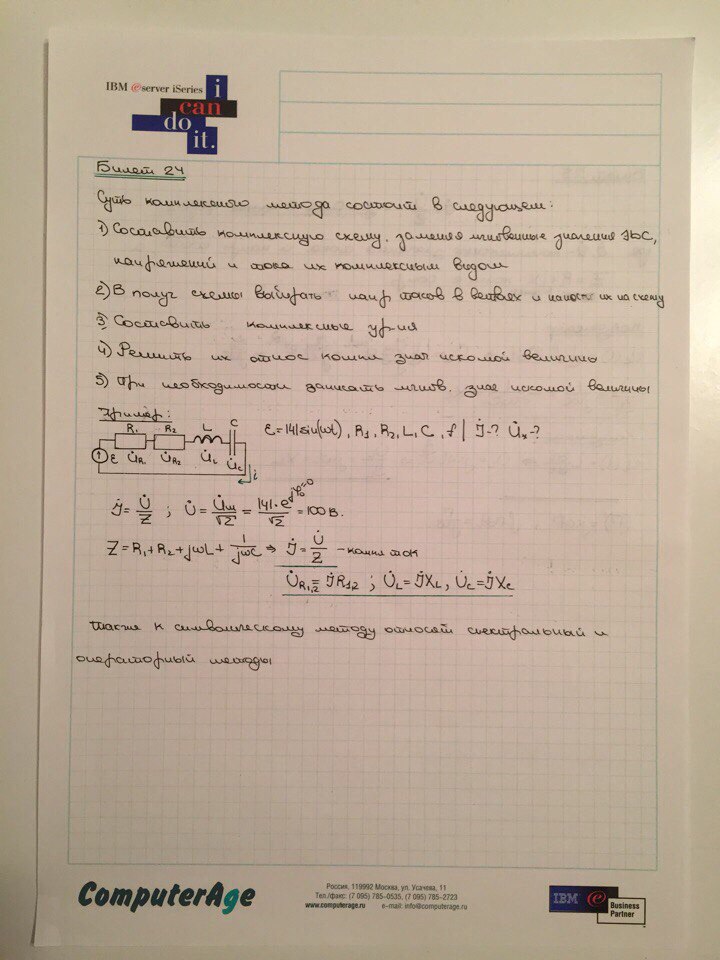 IBM eserver iSeries
i
can
do
it.
Билет 24
Суть комплексного метода состоит в следующем:
1) Составить комплексную схему, заменяя мгновенные значения ЭДС,
напряжений и тока их комплексным видом
2) В получ схемы выбирать напр токов в ветвях и наности их на схему
3) Составить комплексные ур-ия
4) Решить их относ компл знач искомой величины
5) При необходимости записать мгнов. знач искомой величины
Пример:
R₁ R₂ L C
ε = 141sin(ωt), R₁, R₂, L, C, f | İ-? U̇ₓ-?
ε U̇R₁ U̇R₂ U̇L U̇c i
İ = U̇/Z ; U̇ = U̇m/√2 = 141·e^jφ₀⁼⁰/√2 = 100 В.
Z = R₁ + R₂ + jωL + 1/jωC ⇒ İ = U̇/Z – компл ток
U̇R₁,₂ = İR₁,₂ ; U̇L = İXL, U̇c = İXc
также к символическому методу относят спектральный и
операторный методы
ComputerAge
Россия, 119992 Москва, ул. Усачева, 11
Тел./факс: (7 095) 785-0535, (7 095) 785-2723
www.computerage.ru e-mail: info@computerage.ru
IBM e Business
Partner